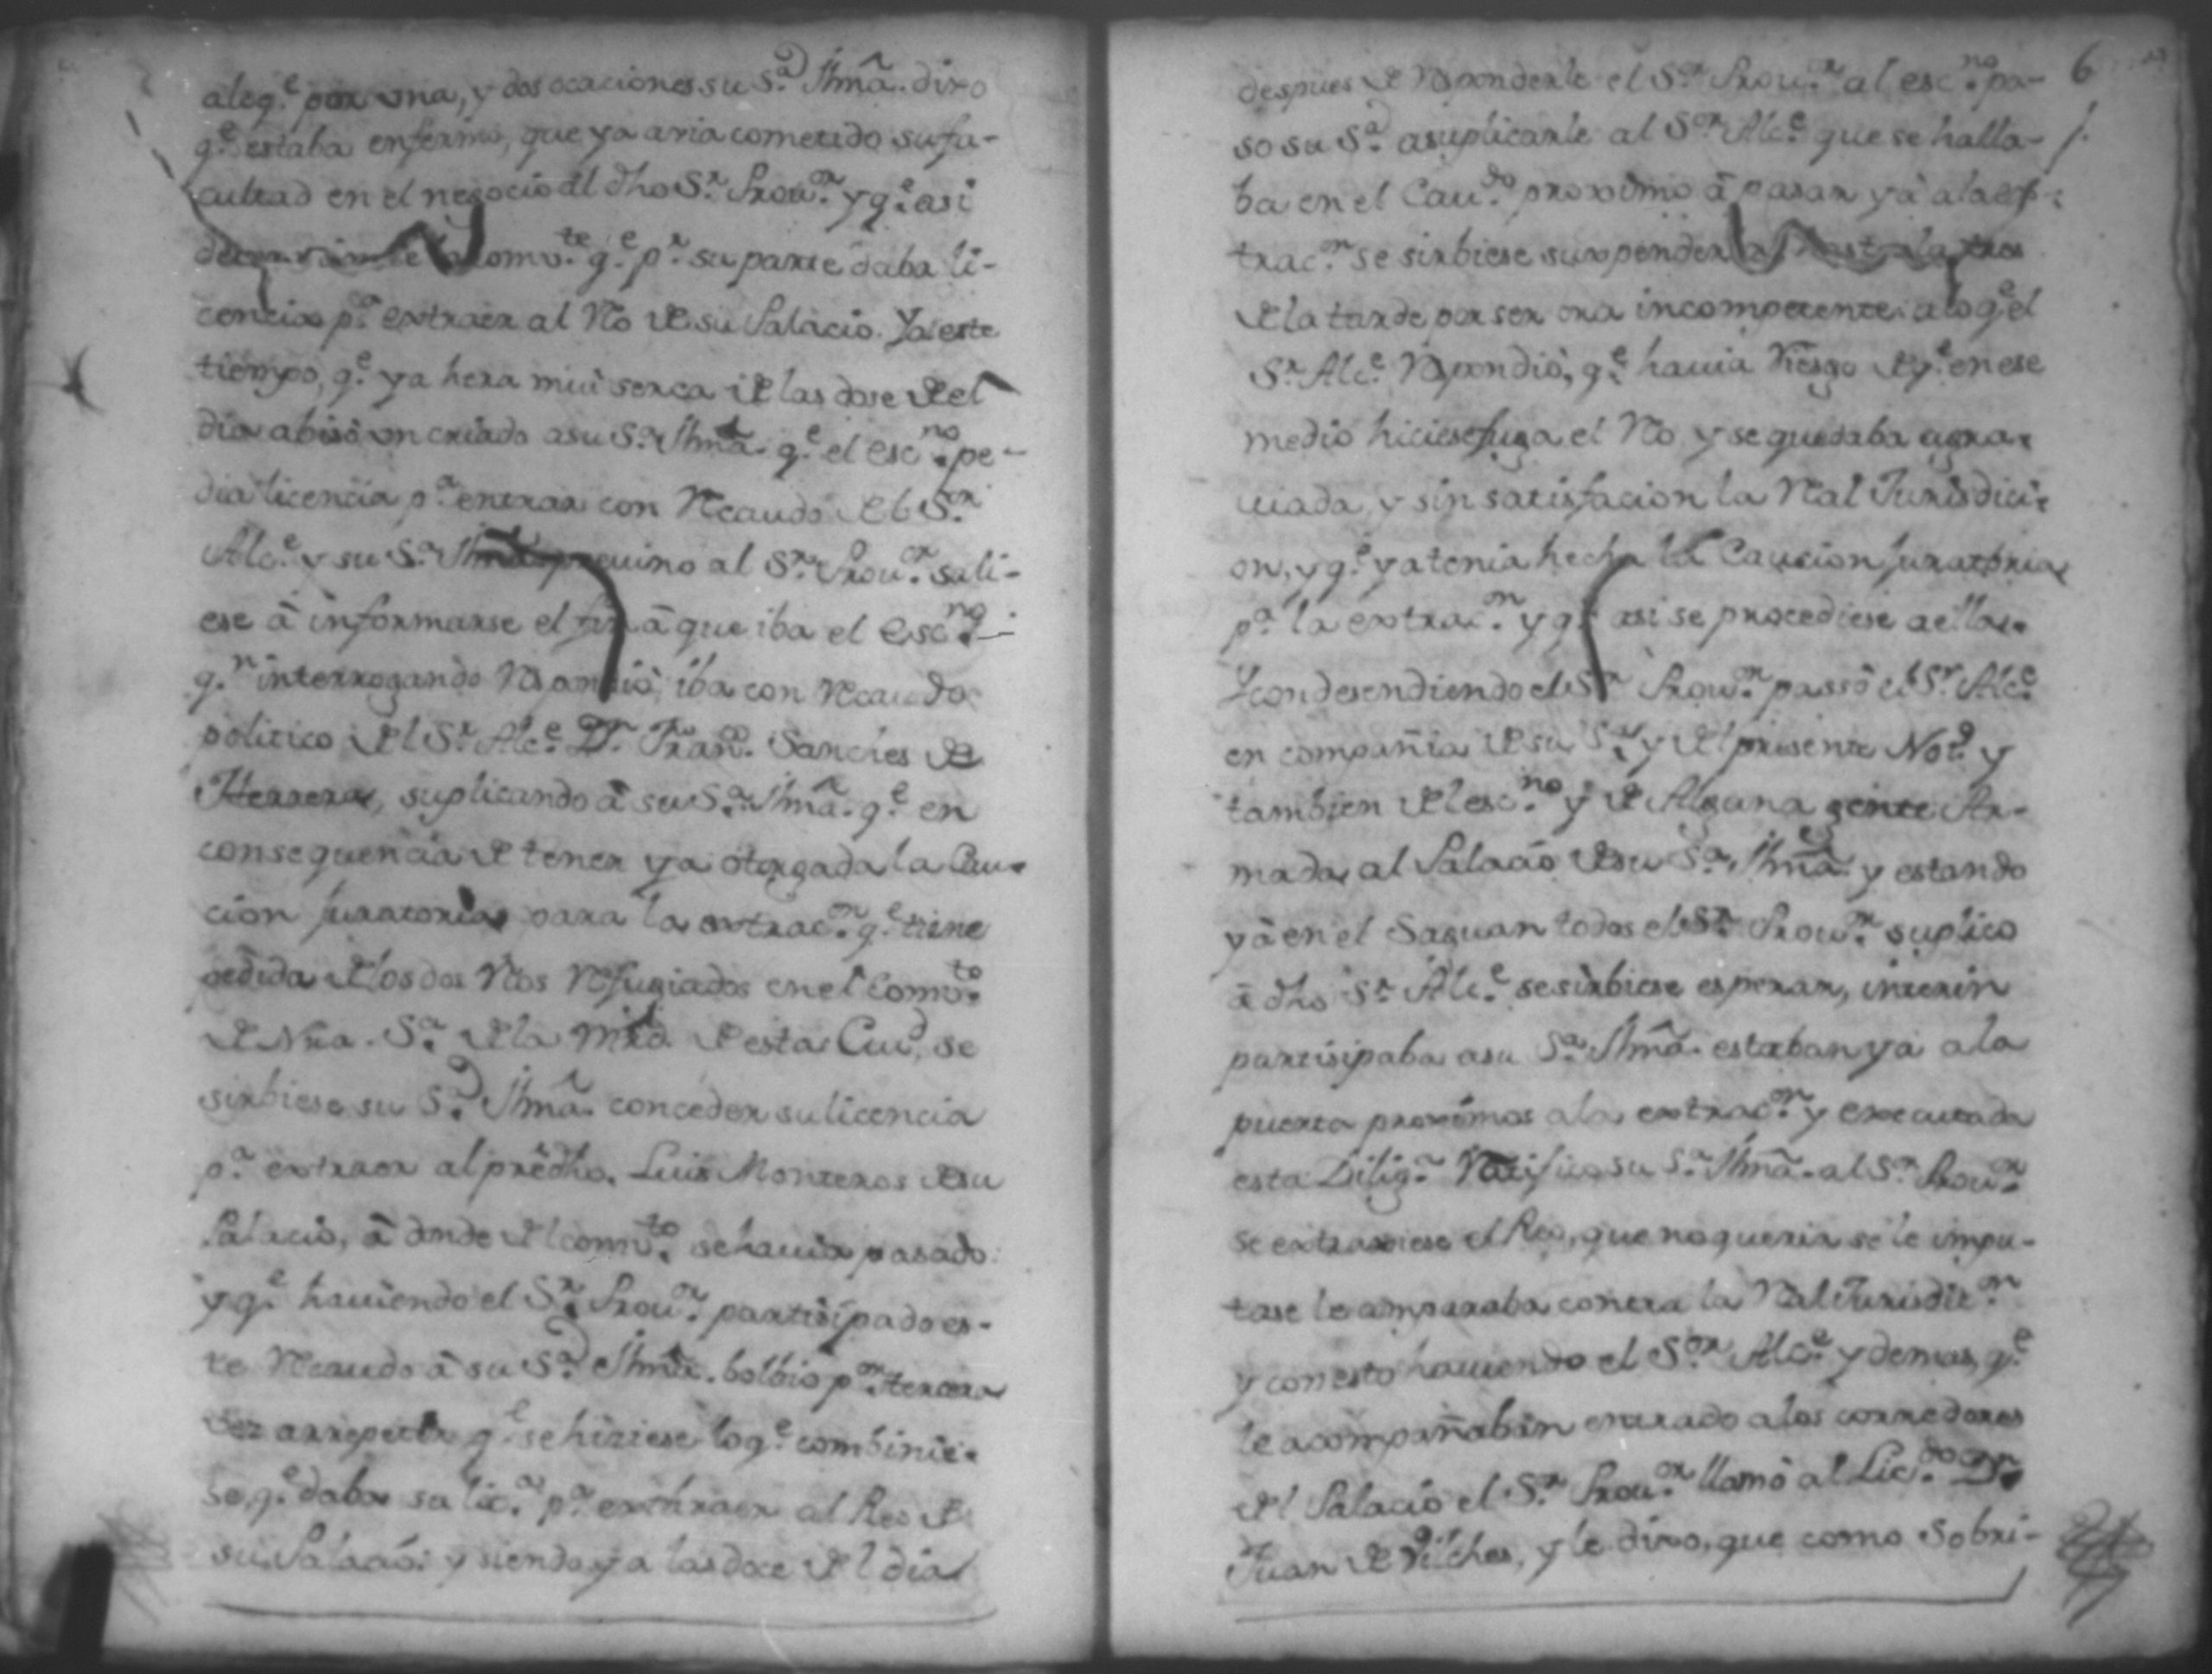 aloq.e por una, y dos ocaciones su S.a Jllmã. dixo
q.e estaba enfermo, que ya avia cometido su fa-
cultad en el negocio al dho S.r Prov.or y q.e asi
q.e p.r su parte daba li-
cencia p.a extraer al Ro de su Palacio. Ya este
tiempo, q.e ya hera mui serca de las dose de el
dia abisò un criado a su S.a Jllmã. q.e el esc.no pe-
dia licencia p.a entrar con Recaudo del S.or
Alc.e y su S.a Jllmã previno al S.r Prov.or sali-
ese â informarse el fin â que iba el esc.no
q.n interrogando Respondiò iba con Recaudo
politico del S.r Alc.e D.n Fran.co Sanches de
Herrera, suplicando â su S.a Jllmã. q.e en
consequencia de tener ya otorgada la Cau-
cion juratoria para la extrac.on q.e tiene
pedida de los dos Ros Refugiados en el Comv.to
de Nra. S.a de la Mrd. de esta Ciud, se
sirbiese su S.a Jllmã. conceder su licencia
p.a extraer al prêdho. Luis Monteros de su
Palacio, â donde del comv.to se havia pasado:
y q.e haviendo el S.r Prov.or partisipado es-
te Recaudo â su S.a Jllmã. bolbio p.or tercera
vez a q.e se hiziese lo q.e combinie-
se, q.e daba su lic.a p.a exthraer al Reo de
su Palacio: y siendo ya las doce del dia
6
despues de Responderle el S.or Prov.or al esc.no pa-
so su S.a a suplicarle al S.or Alc.e que se halla-
ba en el Cav.do proximo â pasar yâ a la ex-
trac.on se sirbiese suspenderla hasta las tres
de la tarde por ser ora incompetente: a lo q.e el
S.r Alc.e Respondiò, q.e havia Riesgo de q.e en ese
medio hiciese fuga el Ro y se quedaba agra-
viada, y sin satisfacion la Real Jurisdici-
on, y q.e ya tenia hecha la Caucion juratoria
p.a la extrac.on y q.e asi se procediese a ella.
Y condesendiendo el S.r Prov.or passô el S.r Alc.e
en compañia de su S.a y del presente Not.o y
tambien del esc.no y de Alguna gente Ar-
mada, al Palacio de su S.a Jllmã. y estando
yâ en el Saguan todos el S.r Prov.or suplico
â dho S.r Alc.e se sirbiese esperar, interin
partisipaba a su S.a Jllmã. estaban ya a la
puerta proximos a la extrac.on y executada
esta Dilig.a Ratifico su S.a Jllmã. al S.r Prov.or
se extraxiese el Reo, que no queria se le impu-
tase le amparaba contra la Real Jurisdic.on
y con esto haviendo el S.or Alc.e y demas, q.e
le acompañaban entrado a los corredores
del Palacio el S.r Prov.or llamò al Lic.do D.n
Juan de Vilches, y le dixo, que como Sobri-